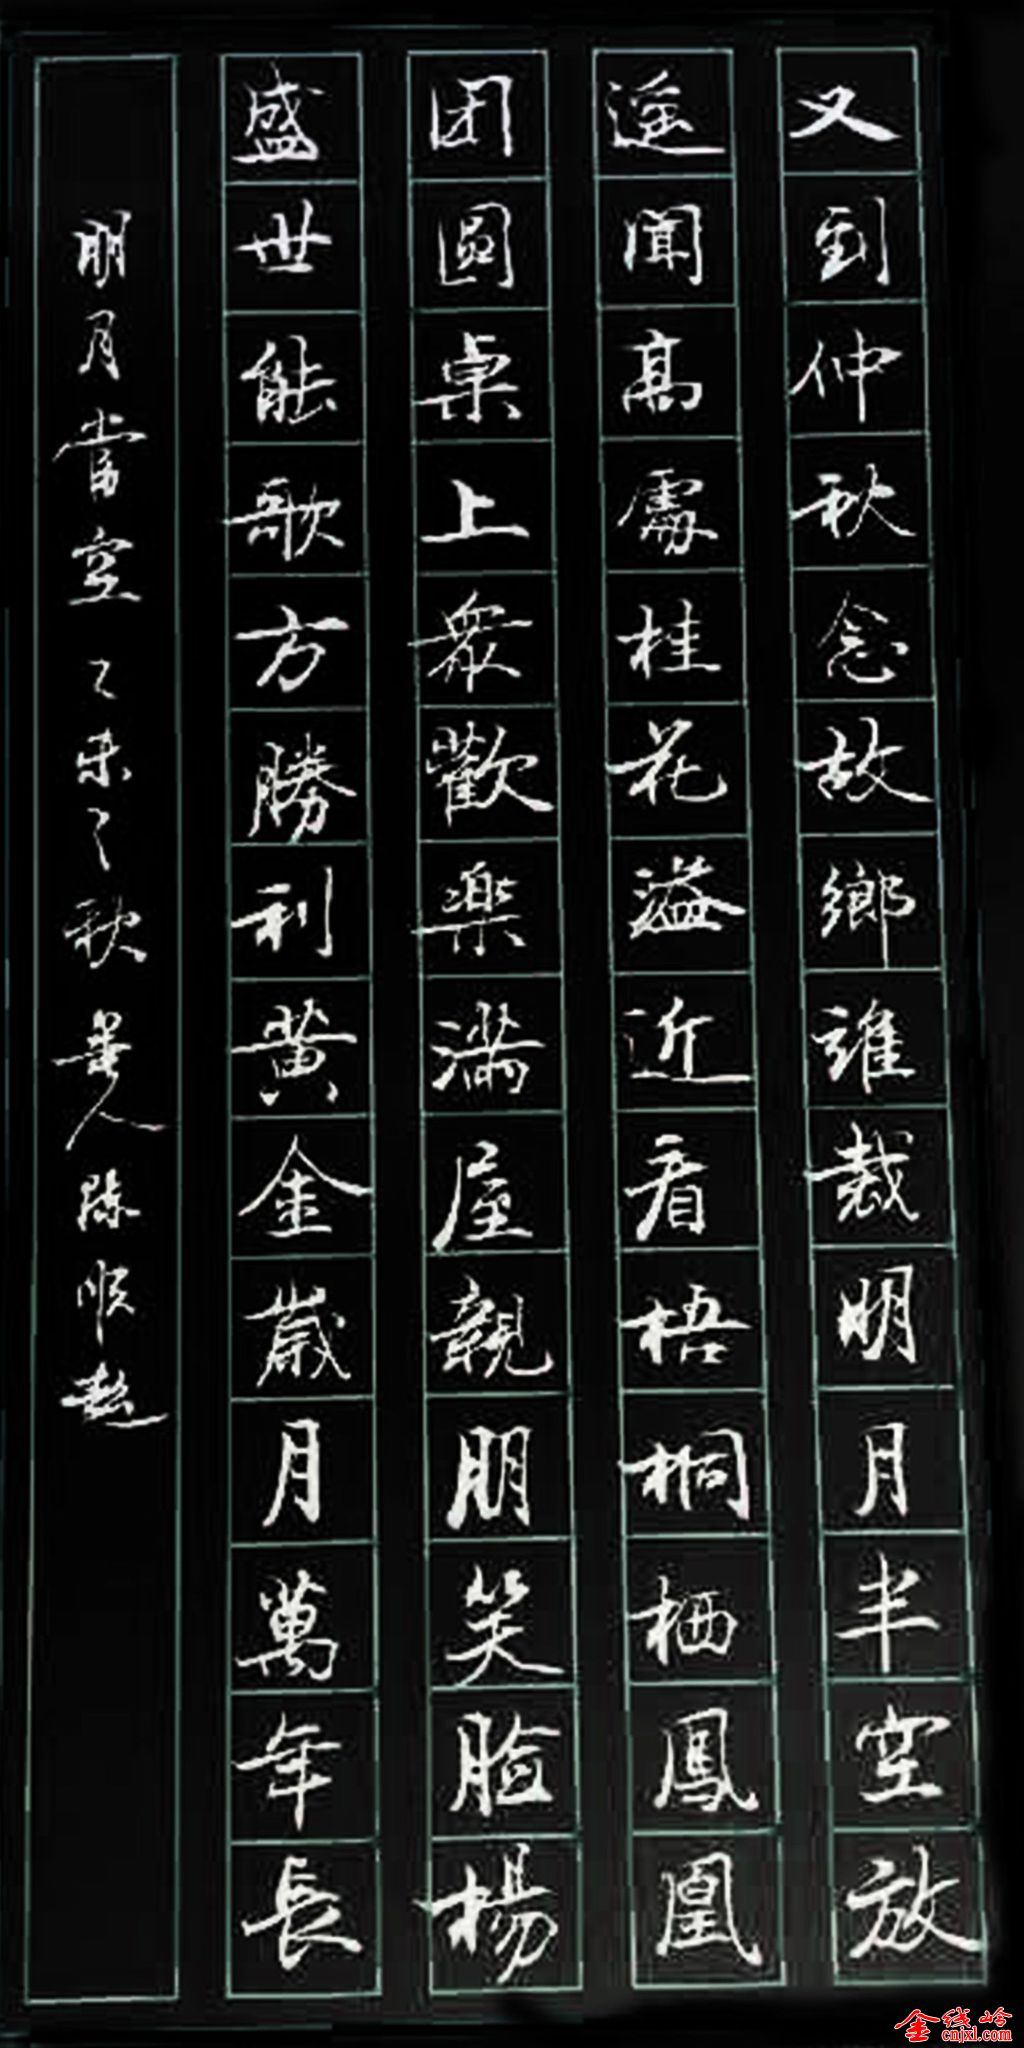 又到仲秋念故鄉誰裁明月半空放
遥聞高處桂花溢近看梧桐栖鳳凰
团圓桌上衆歡樂满屋親朋笑脸楊
盛世能歌方勝利黄金歲月萬年長
明月當空 乙未之秋 華人陈顺超
金线岭
cnjxl.com